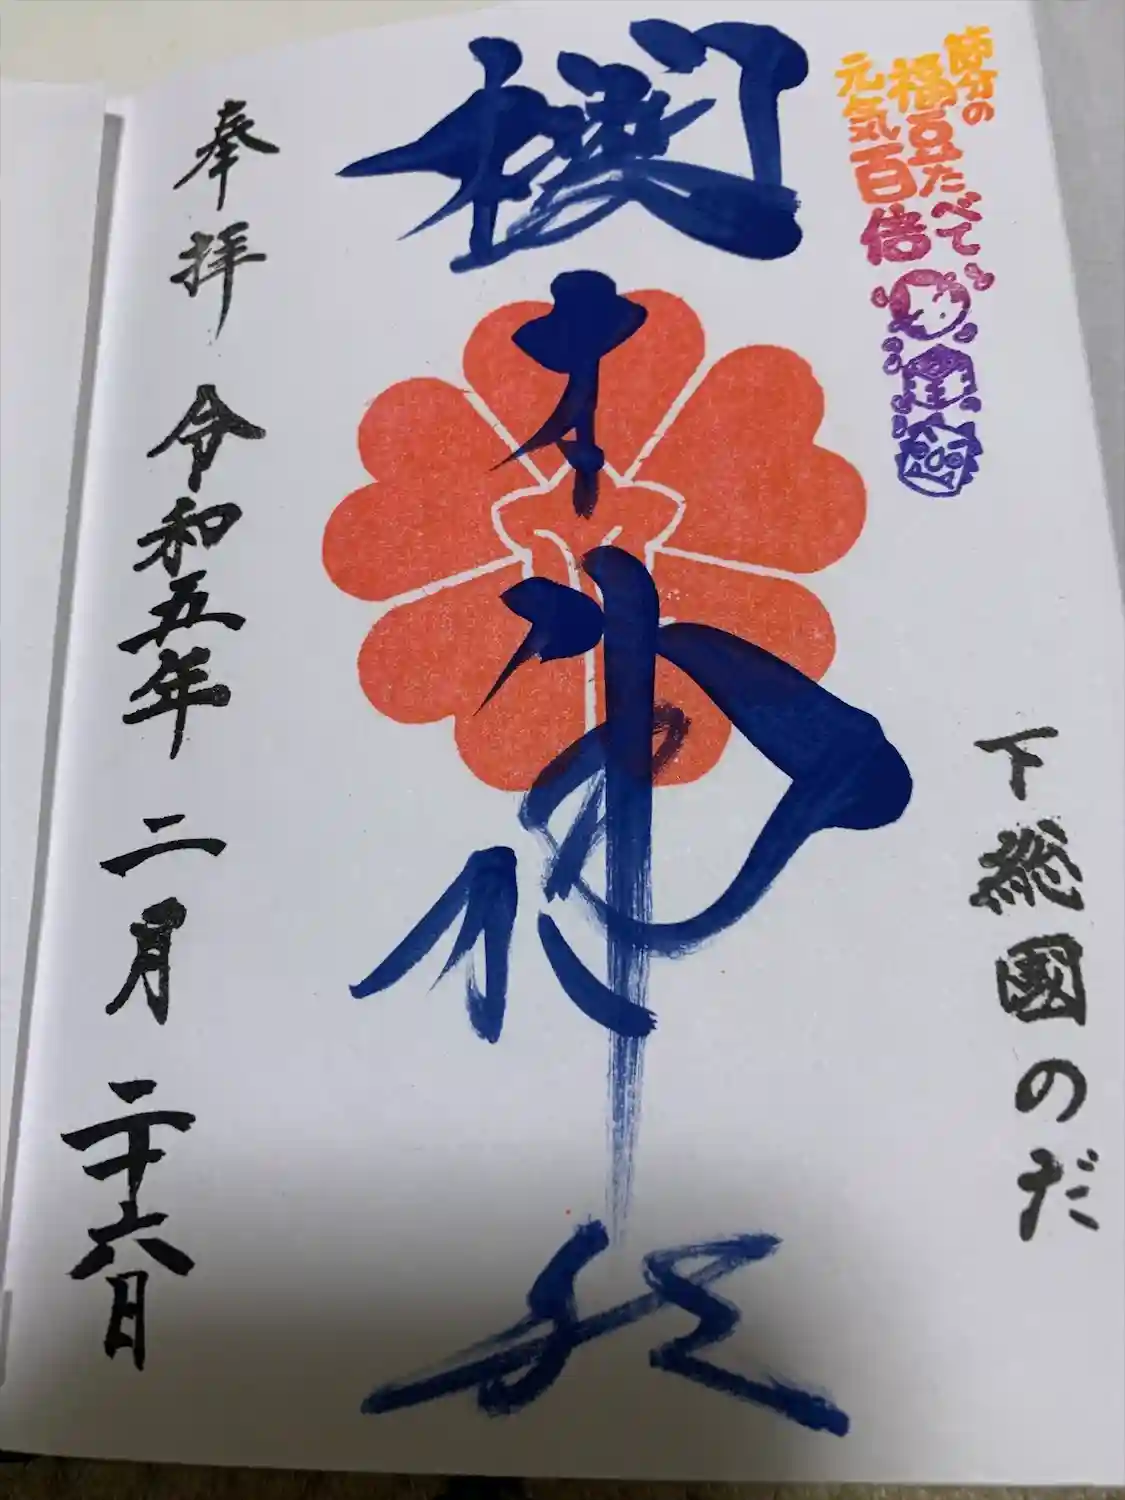 節分の
福豆たべて
元気百倍
下総國のだ
櫻木神社
奉拝 令和五年 二月 二十六日